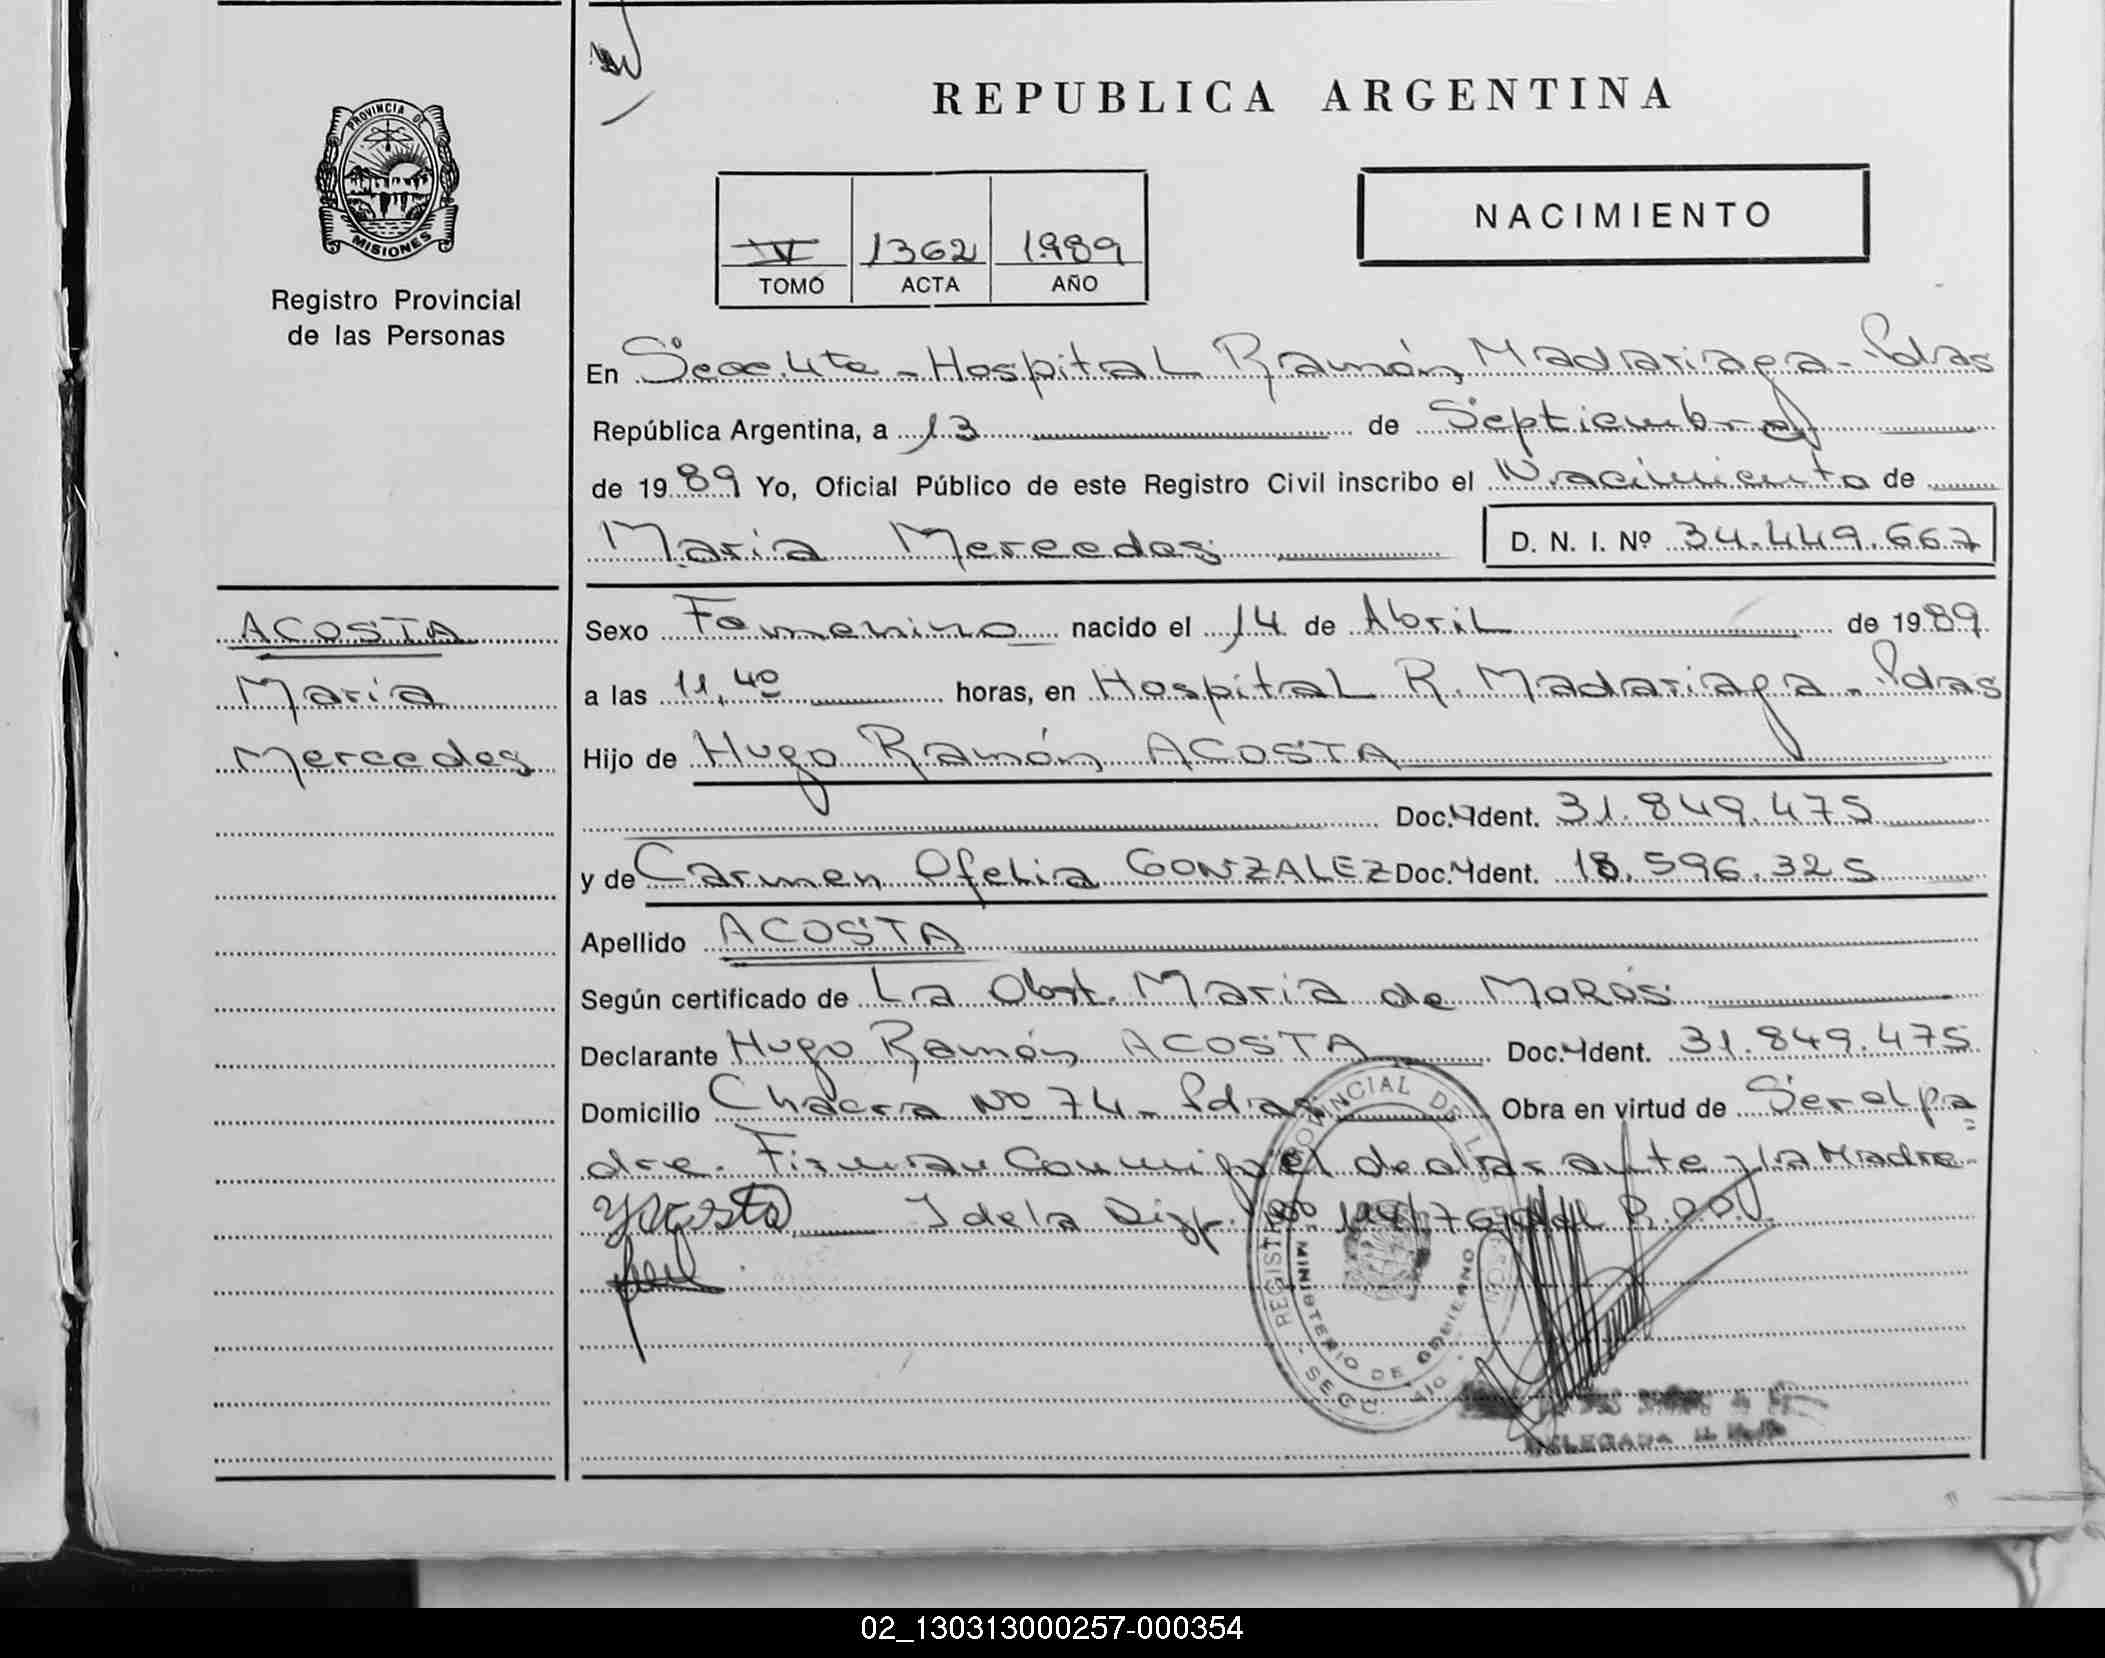 REPUBLICA ARGENTINA
PROVINCIA DE
MISIONES
Registro Provincial
de las Personas
IV 1362 1989
TOMO ACTA AÑO
NACIMIENTO
En Secc. 4ta - Hospital Ramón Madariaga - Pdas
República Argentina, a 13 de Septiembre
de 1989 Yo, Oficial Público de este Registro Civil inscribo el Nacimiento de
María Mercedes D. N. I. Nº 34.449.667
ACOSTA
María
Mercedes
Sexo Femenino nacido el 14 de Abril de 1989
a las 11,40 horas, en Hospital R. Madariaga - Pdas
Hijo de Hugo Ramón ACOSTA
Doc. Ident. 31.849.475
y de Carmen Ofelia GONZALEZ Doc. Ident. 18.596.325
Apellido ACOSTA
Según certificado de La Obst. María de MOROS
Declarante Hugo Ramón ACOSTA Doc. Ident. 31.849.475
Domicilio Chacra Nº 74 - Pdas Obra en virtud de Ser el pa
dre. Firman Conmigo el declarante y la Madre
Acosta de la Disp. Nº
REGISTRO PROVINCIAL DE
MINISTERIO DE GOBIERNO
DELEGADA
02_130313000257-000354